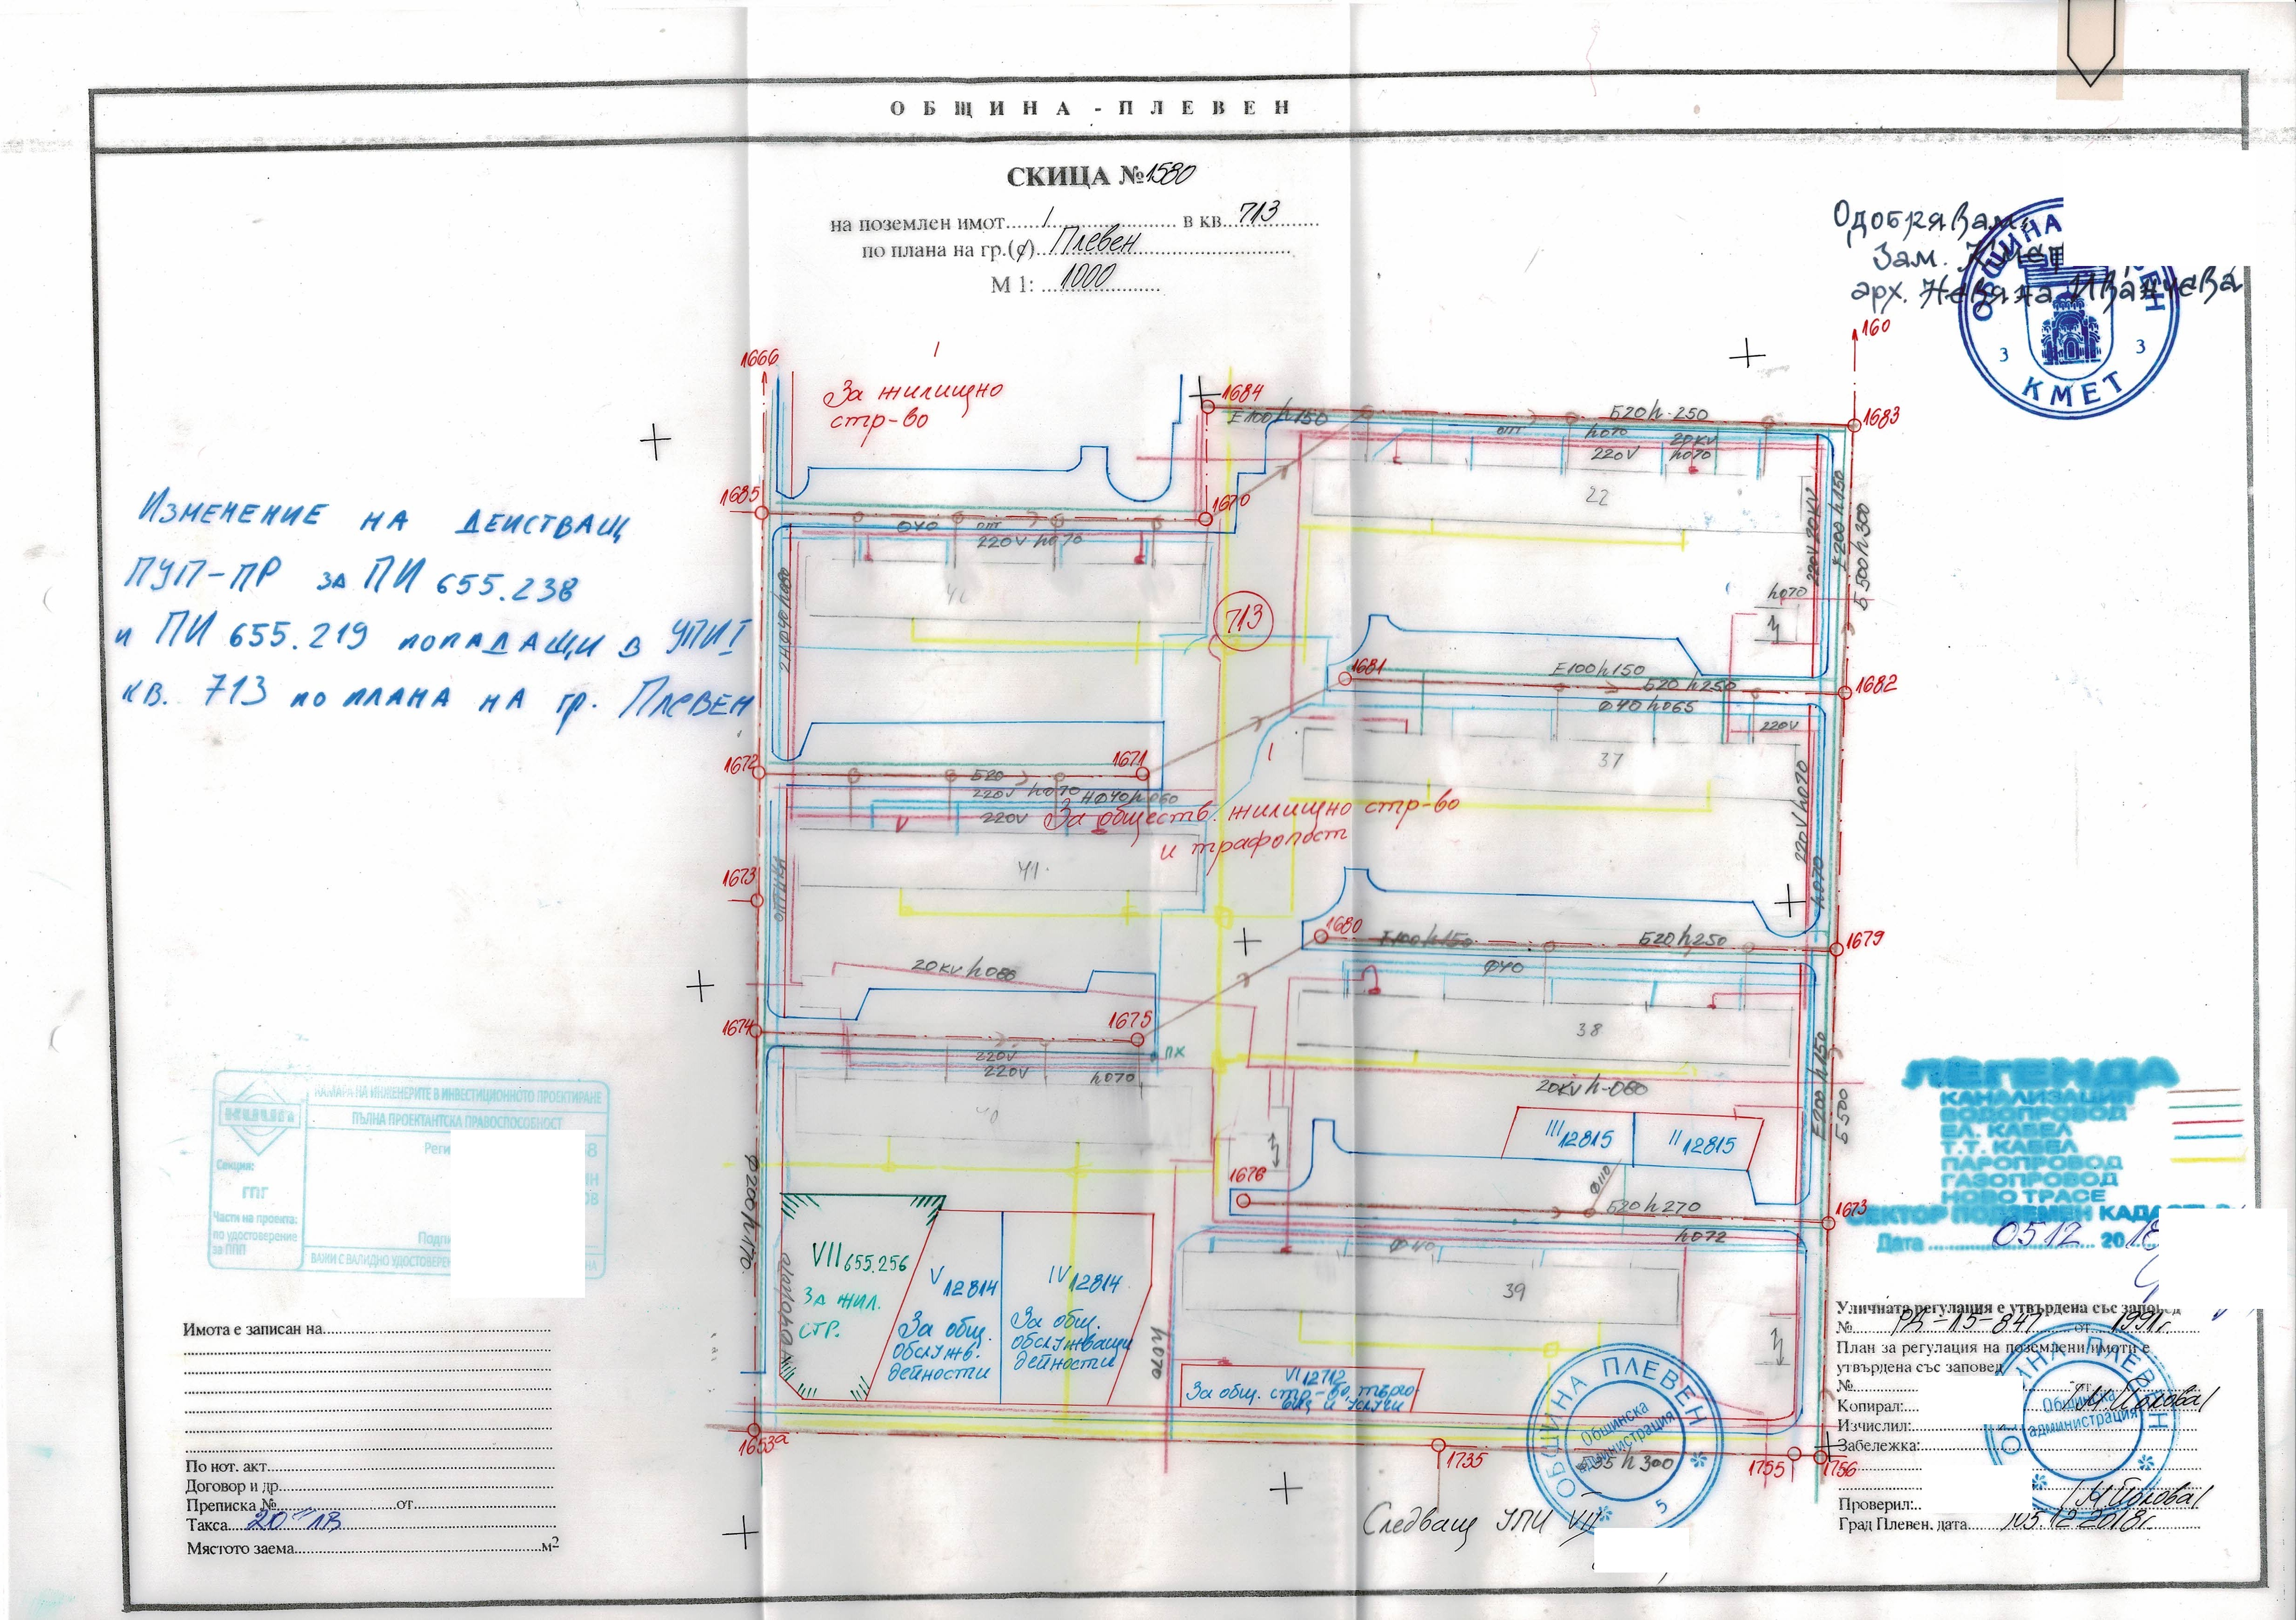 ОБЩИНА - ПЛЕВЕН
СКИЦА №1580
на поземлен имот......I...... в кв...713......
по плана на гр.(с)...Плевен......
М 1: ...1000......
Одобрявам,
Зам. Кмет
арх. Невяна Иванчева
ОБЩИНА
КМЕТ
3 3
Изменение на действащ
ПУП-ПР за ПИ 655.238
и ПИ 655.219 попадащи в УПИ I
кв. 713 по плана на гр. Плевен
1666
I
За жилищно
стр-во
1684
160
1683
E100 h150
Б20 h-250
h070
20KV
220V
h070
22
1685
1670
Ф40
220V h070
42
220V 20KV
E200 h150
Б 500 h300
h070
713
1681
E100 h150
Б20 h250
1682
Ф40 h065
220V
37
I
1672
1671
Б20
220V h070
НФ40 h060
220V
За обществ. жилищно стр-во
и трафопост
220V h070
h070
41
1673
1680
E100 h150
Б20 h250
1679
Ф40
20KV h080
38
1674
1675
ПХ
220V
220V
h070
40
20KV h-080
E200 h150
Б 500
III 12815
II 12815
1676
Ф110
Б20 h270
1673
h072
Ф40
39
Ф200 h170
VII 655.256
За жил.
стр.
V 12814
За общ.
обслужв.
дейности
IV 12814
За общ.
обслужващи
дейности
h070
VI 12712
За общ. стр-во, търго-
вия и услуги
1653а
1735
h 300
1755
1756
Следващ УПИ VIII
КАМАРА НА ИНЖЕНЕРИТЕ В ИНВЕСТИЦИОННОТО ПРОЕКТИРАНЕ
ПЪЛНА ПРОЕКТАНТСКА ПРАВОСПОСОБНОСТ
Секция:
ГПГ
Части на проекта:
по удостоверение
за ППП
ЛЕГЕНДА
КАНАЛИЗАЦИЯ
ВОДОПРОВОД
ЕЛ. КАБЕЛ
Т.Т. КАБЕЛ
ПАРОПРОВОД
ГАЗОПРОВОД
НОВО ТРАСЕ
СЕКТОР ПОДЗЕМЕН
Дата ......05.12...... 2018
Имота е записан на......
По нот. акт......
Договор и др......
Преписка №......от......
Такса...20 лв......
Мястото заема......м²
Уличната регулация е утвърдена със заповед
№......РД-15-847......от...1991г.
План за регулация на поземлени имоти е
утвърдена със заповед
№......от
Копирал:...
Изчислил:...
Забележка:...
Проверил:...
Град Плевен, дата...05.12.2018г.
ОБЩИНА ПЛЕВЕН
Общинска
администрация
5
Общинска
администрация